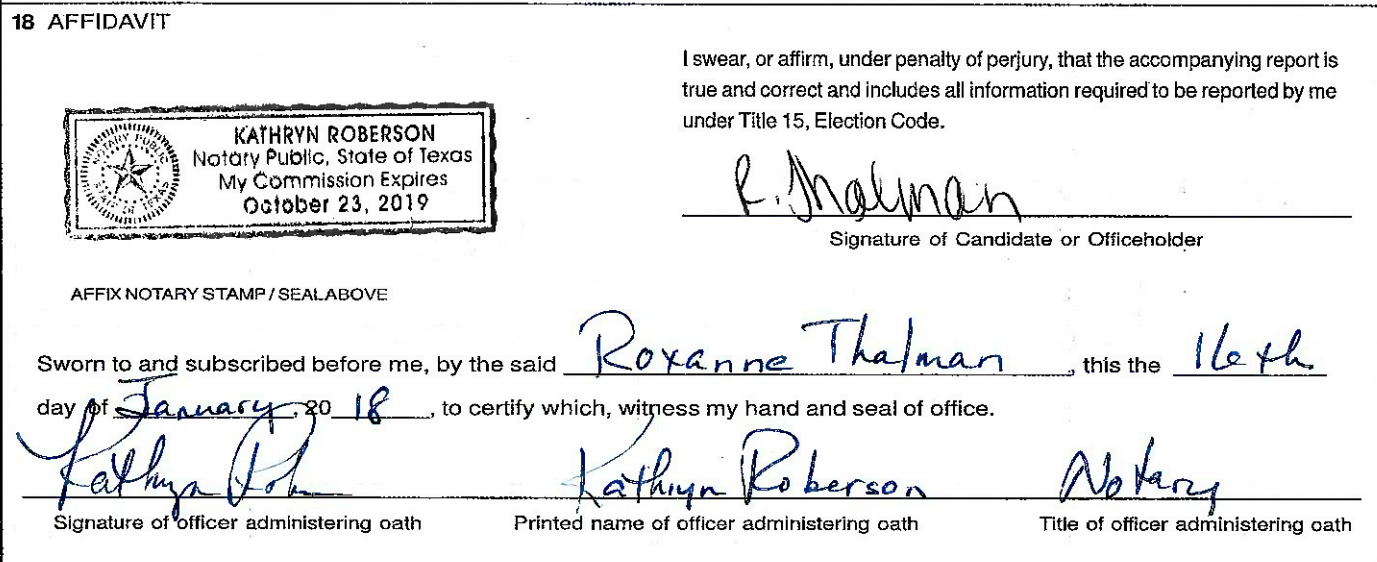 18 AFFIDAVIT
I swear, or affirm, under penalty of perjury, that the accompanying report is
true and correct and includes all information required to be reported by me
under Title 15, Election Code.
KATHRYN ROBERSON
Notary Public, State of Texas
My Commission Expires
October 23, 2019
NOTARY PUBLIC
STATE OF TEXAS
R. Thalman
Signature of Candidate or Officeholder
AFFIX NOTARY STAMP / SEAL ABOVE
Sworn to and subscribed before me, by the said Roxanne Thalman, this the 16th
day of January, 20 18, to certify which, witness my hand and seal of office.
Kathryn Rob
Kathryn Roberson
Notary
Signature of officer administering oath
Printed name of officer administering oath
Title of officer administering oath